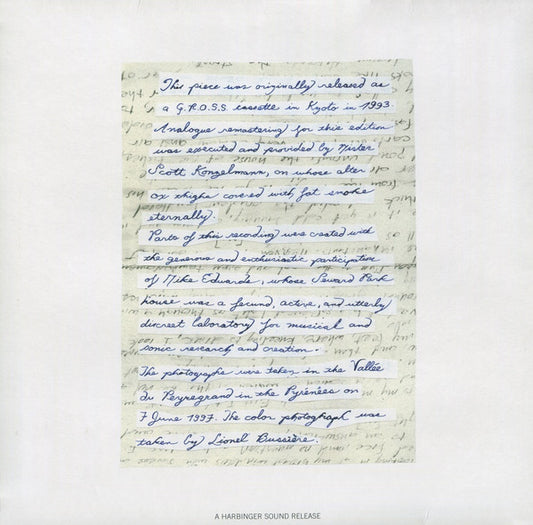 This piece was originally released as
a G.R.O.S.S. cassette in Kyoto in 1993.
Analogue remastering for this edition
was executed and provided by Mister
Scott Konzelmann, on whose altar
ox thighs covered with fat smoke
eternally.
Parts of this recording were created with
the generous and enthusiastic participation
of Mike Edwards, whose Seward Park
house was a fecund, active, and utterly
discreet laboratory for musical and
sonic research and creation.
The photographs were taken in the Vallée
du Peyregrand in the Pyrénées on
7 June 1997. The color photograph was
taken by Lionel Bussière.
A HARBINGER SOUND RELEASE